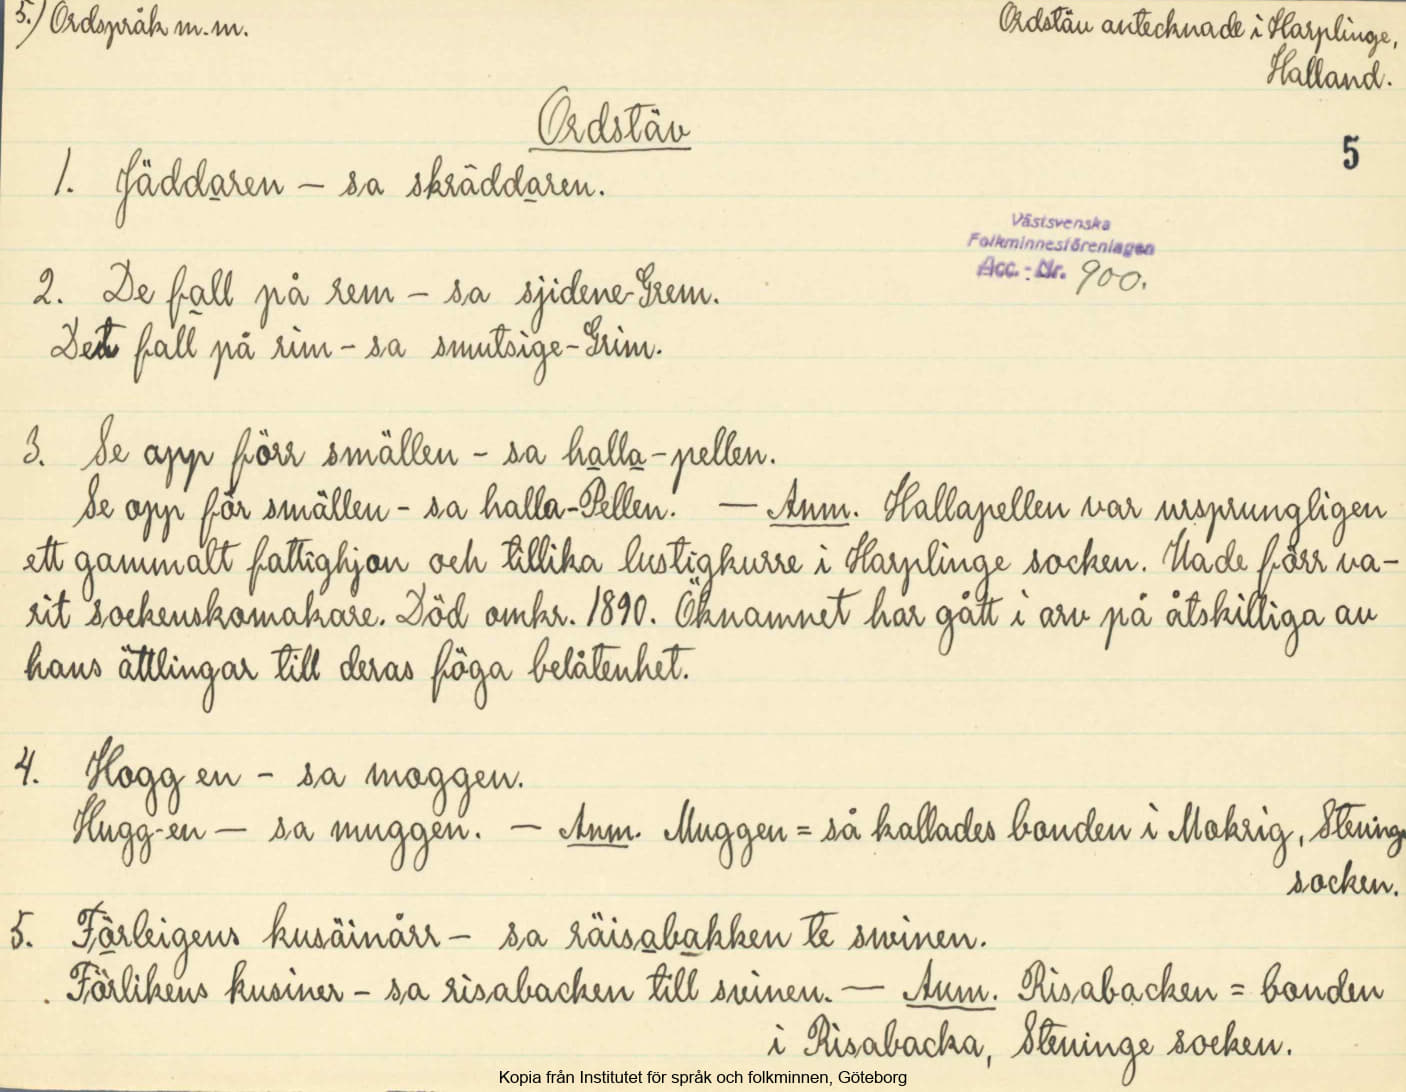 5.) Ordspråk m.m.
Ordstäv antecknade i Harplinge,
Halland.
Ordstäv
5
1. Jäddaren – sa skräddaren.
Västsvenska
Folkminnesföreningen
Acc.-Nr. 900.
2. De fall på rem – sa sjidene-Grem.
Det fall på rim – sa smutsige-Grim.
3. Se opp förr smällen – sa halla-pellen.
Se opp för smällen – sa halla-Pellen. — Anm. Hallapellen var ursprungligen
ett gammalt fattighjon och tillika lustigkurre i Harplinge socken. Hade förr va-
rit sockenskomakare. Död omkr. 1890. Öknamnet har gått i arv på åtskilliga av
hans ättlingar till deras föga belåtenhet.
4. Hogg en – sa moggen.
Hugg-en – sa muggen. – Anm. Muggen = så kallades bonden i Mokrig, Steninge
socken.
5. Förleigens kusäinårr – sa räisabakken te swinen.
Förlikens kusiner – sa risabacken till svinen. — Anm. Risabacken = bonden
i Risabacka, Steninge socken.
Kopia från Institutet för språk och folkminnen, Göteborg